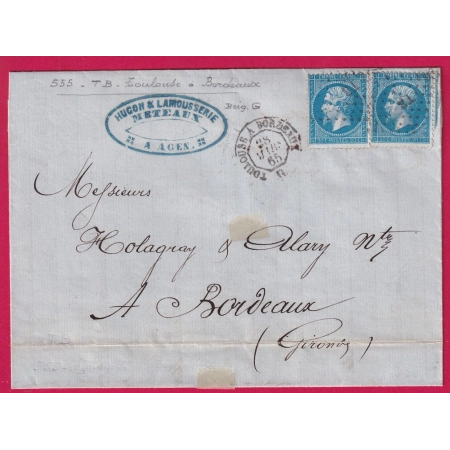 555 - TB. Toulouse à Bordeaux
Brig. G
HUGON & LAMOUSSERIE
METEAUX
A AGEN.
TOULOUSE A BORDEAUX
28
65
Messieurs
Holagray & Alary Nts
A Bordeaux
(Gironde)